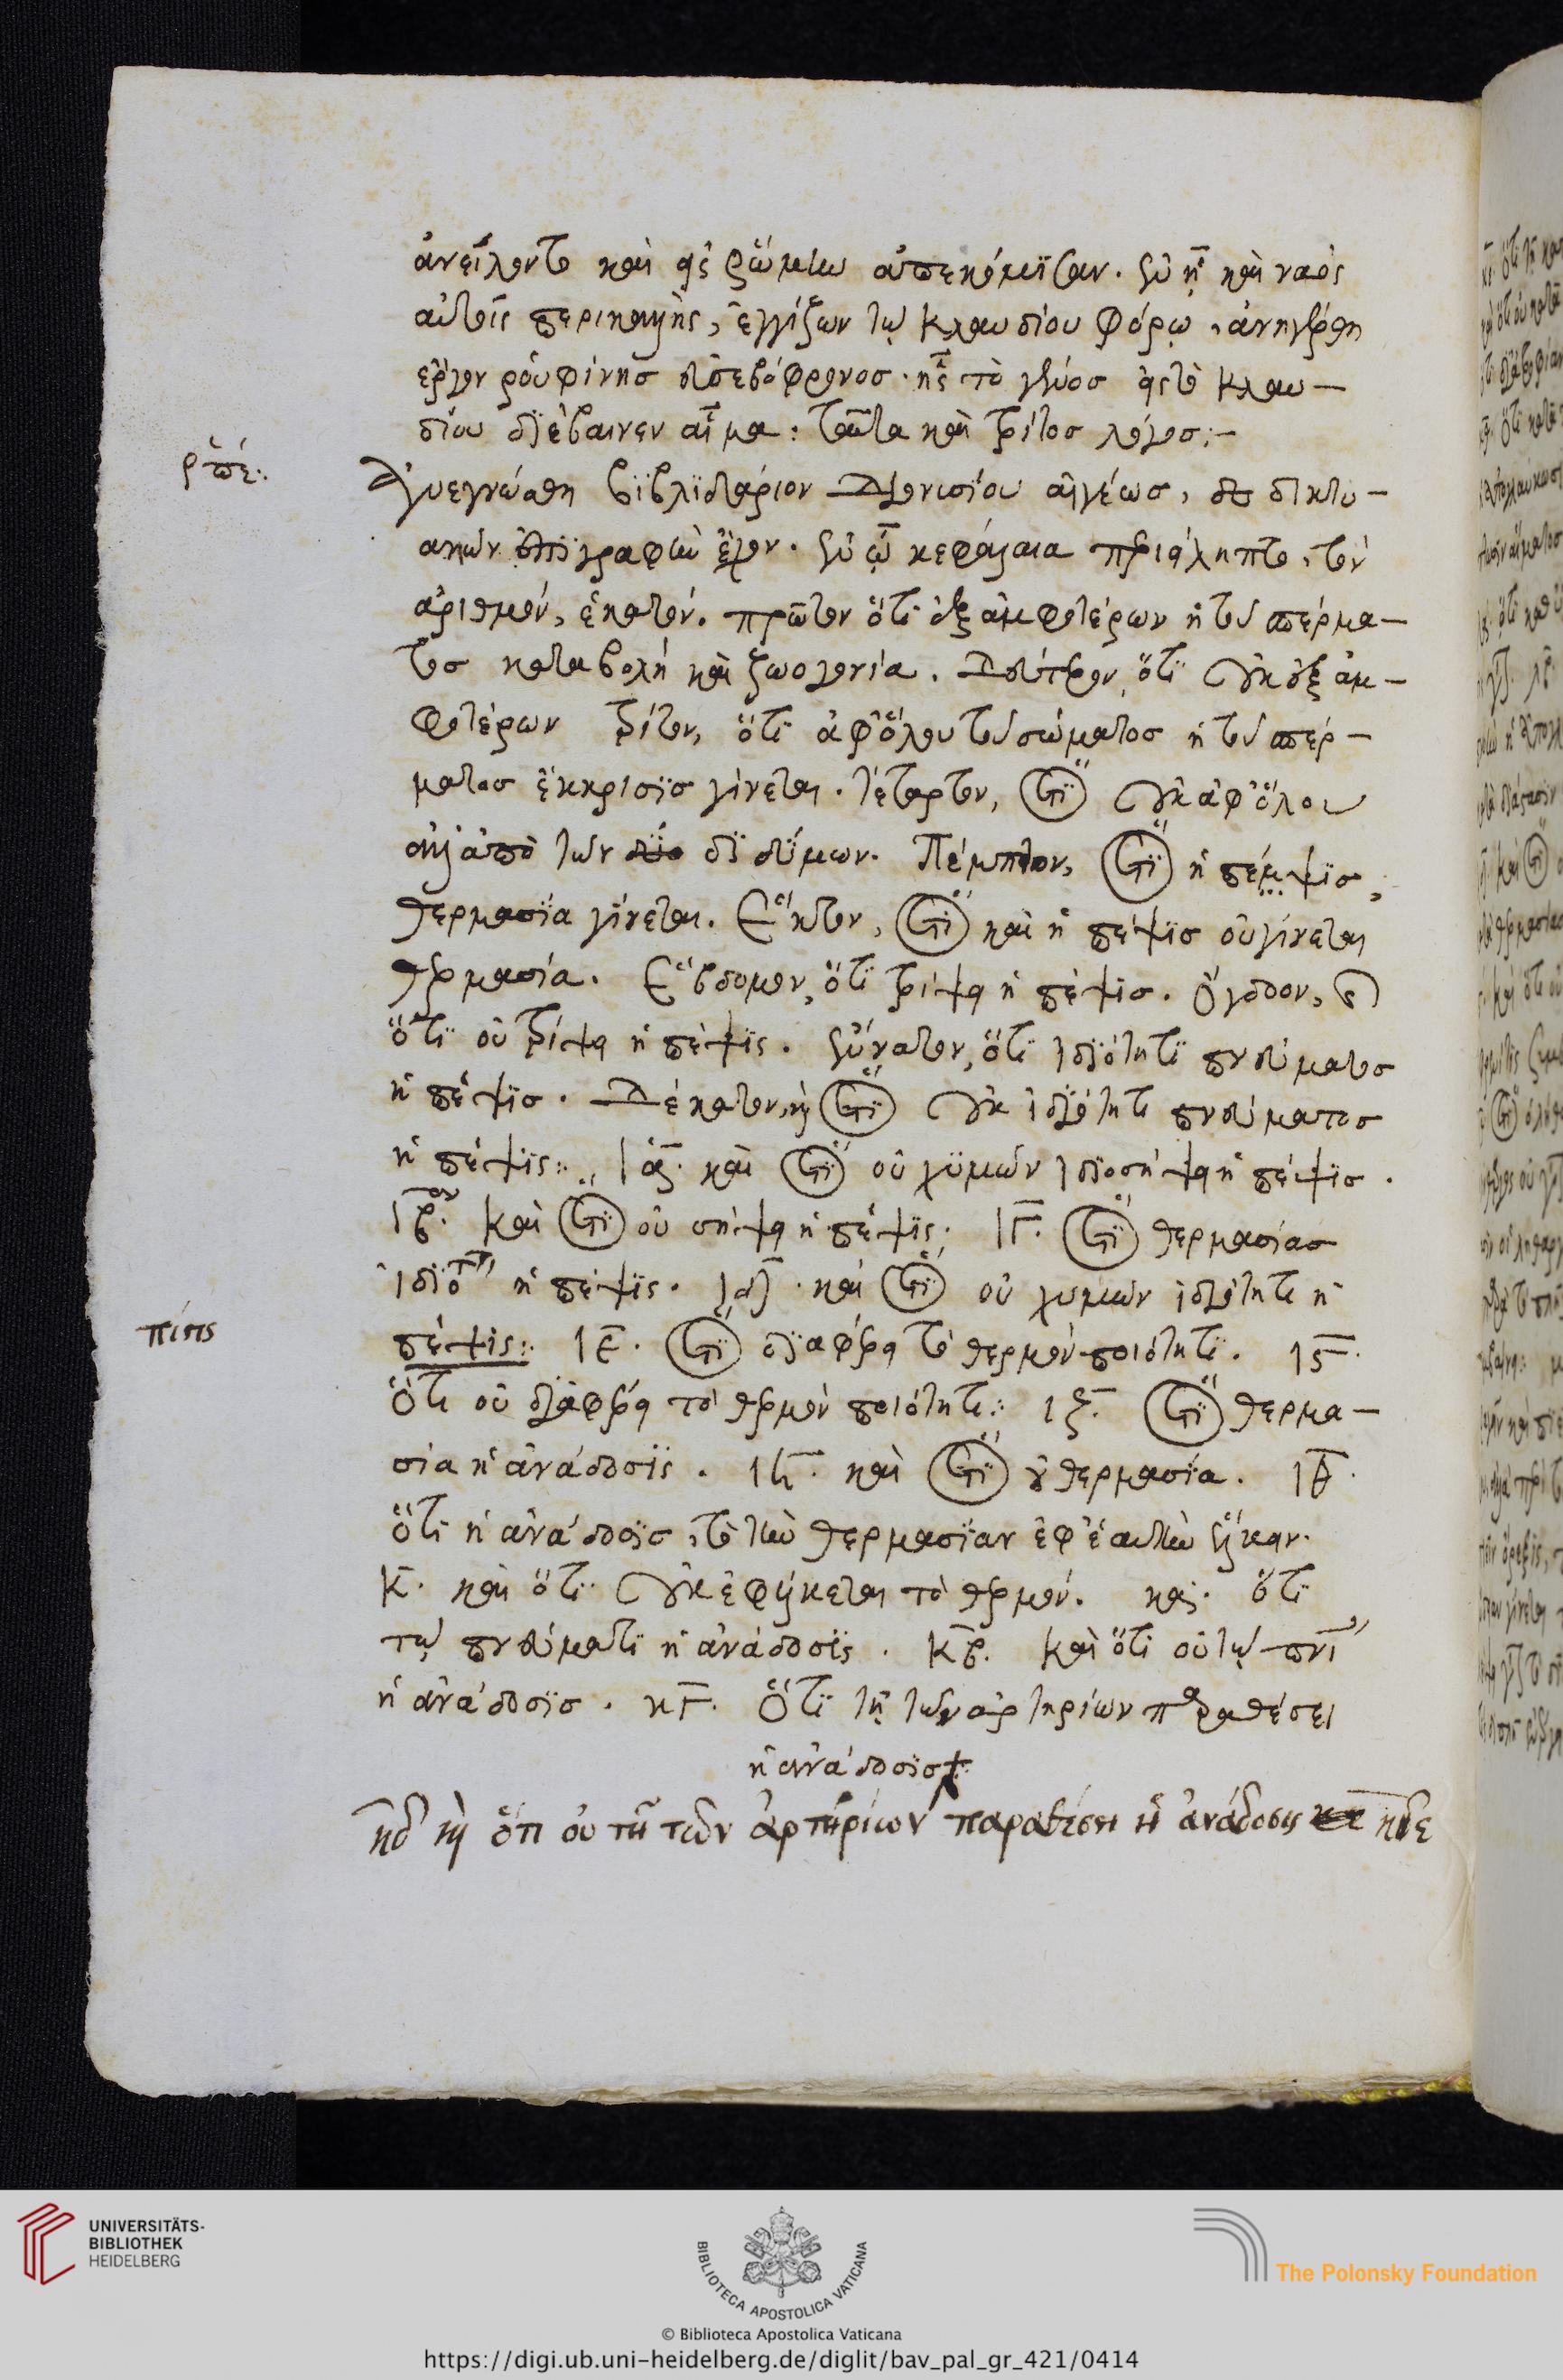 ἀνείλοντο καὶ εἰς ῥώμην ἀπεκόμϊσαν. ἐν ᾗ καὶ ναὸς
αὐτοῖς περικαλλὴς, ἐγγίζων τῷ Κλαυδίου φόρῳ, ἀνηγέρθη
ἔργον ῥουφίνης εὐσεβόφρονος. ἧς τὸ γένος εἰς τὸ Κλαυ-
δίου διέβαινεν αἷμα: ταῦτα καὶ τρίτος λόγος:-
ρπέ:
Ἀνεγνώσθη βϊβλϊδάριον Διονυσίου αἰγέως, δικτυ-
ακῶν ἐπϊγραφὴν ἔχον. ἐν ᾧ κεφάλαια περιείληπτο, τὸν
ἀριθμὸν, ἑκατόν. πρῶτον ὅτι ἐξ ἀμφοτέρων ἡ τοῦ σπέρμα-
τος καταβολὴ καὶ ζωογονία. Δεύτερον, ὅτϊ οὐκ ἐξ ἀμ-
φοτέρων τρίτον, ὅτι ἀφ' ὅλου τοῦ σώματος ἡ τοῦ σπέρ-
ματος ἔκκρισϊς γίνεται. τέταρτον, ὅτϊ οὐκ ἀφ' ὅλου
ἀλλ' ἀπὸ τῶν δϊδύμων. Πέμπτον, ὅτϊ ἡ πέμψϊς,
θερμασϊα γίνεται. Ἕκτον, ὅτϊ καὶ ἡ πέψϊς οὐ γίνεται
θερμασία. Ἕβδομον, ὅτϊ τρίψει ἡ πέψις. Ὄγδοον,
ὅτϊ οὐ τρίψει ἡ πέψϊς. ἔνατον, ὅτϊ ἰδιότητϊ πνεύματος
ἡ πέψϊς. Δέκατον, καὶ ὅτϊ οὐκ ἰδιότητι πνεύματος
ἡ πέψϊς:. ια. καὶ ὅτϊ οὐ χϋμῶν ἰδιοσήψει ἡ πέψϊς.
ιβον. καὶ ὅτϊ οὐ σήψει ἡ πέψϊς. ιγ. ὅτϊ θερμασίας
ἰδϊότητι ἡ πέψϊς. ιδ. καὶ ὅτϊ οὐ χυμῶν ἰδιότητι ἡ
πέψις
πέψϊς:. ιε. ὅτϊ διαφέρει τὸ θερμὸν ποιότητϊ. ις.
Ὅτι οὐ διαφέρει τὸ θερμὸν ποιότητι:. ιζ. ὅτϊ θερμα-
σία ἡ ἀνάδοσϊς. ιη. καὶ ὅτϊ οὐ θερμασία. ιθ.
Ὅτϊ ἡ ἀνάδοσϊς, τὸ τὴν θερμασίαν ἐφ' ἑαυτὴν ἕλκειν.
κ. καὶ ὅτϊ οὐκ ἐφέλκεται τὸ θερμόν. κα. ὅτϊ
τῷ πνεύματϊ ἡ ἀνάδοσϊς. κβ. καὶ ὅτϊ οὐ τῷ πνι
ἡ ἀνάδοσϊς. κγ. Ὅτϊ τῇ τῶν ἀρτηρίων παραθέσει
ἡ ἀνάδοσϊς
κδ καὶ ὅτι οὐ τῇ τῶν ἀρτηρίων παραθέσει ἡ ἀνάδοσις κε
UNIVERSITÄTS-
BIBLIOTHEK
HEIDELBERG
BIBLIOTECA APOSTOLICA VATICANA
The Polonsky Foundation
© Biblioteca Apostolica Vaticana
https://digi.ub.uni-heidelberg.de/diglit/bav_pal_gr_421/0414